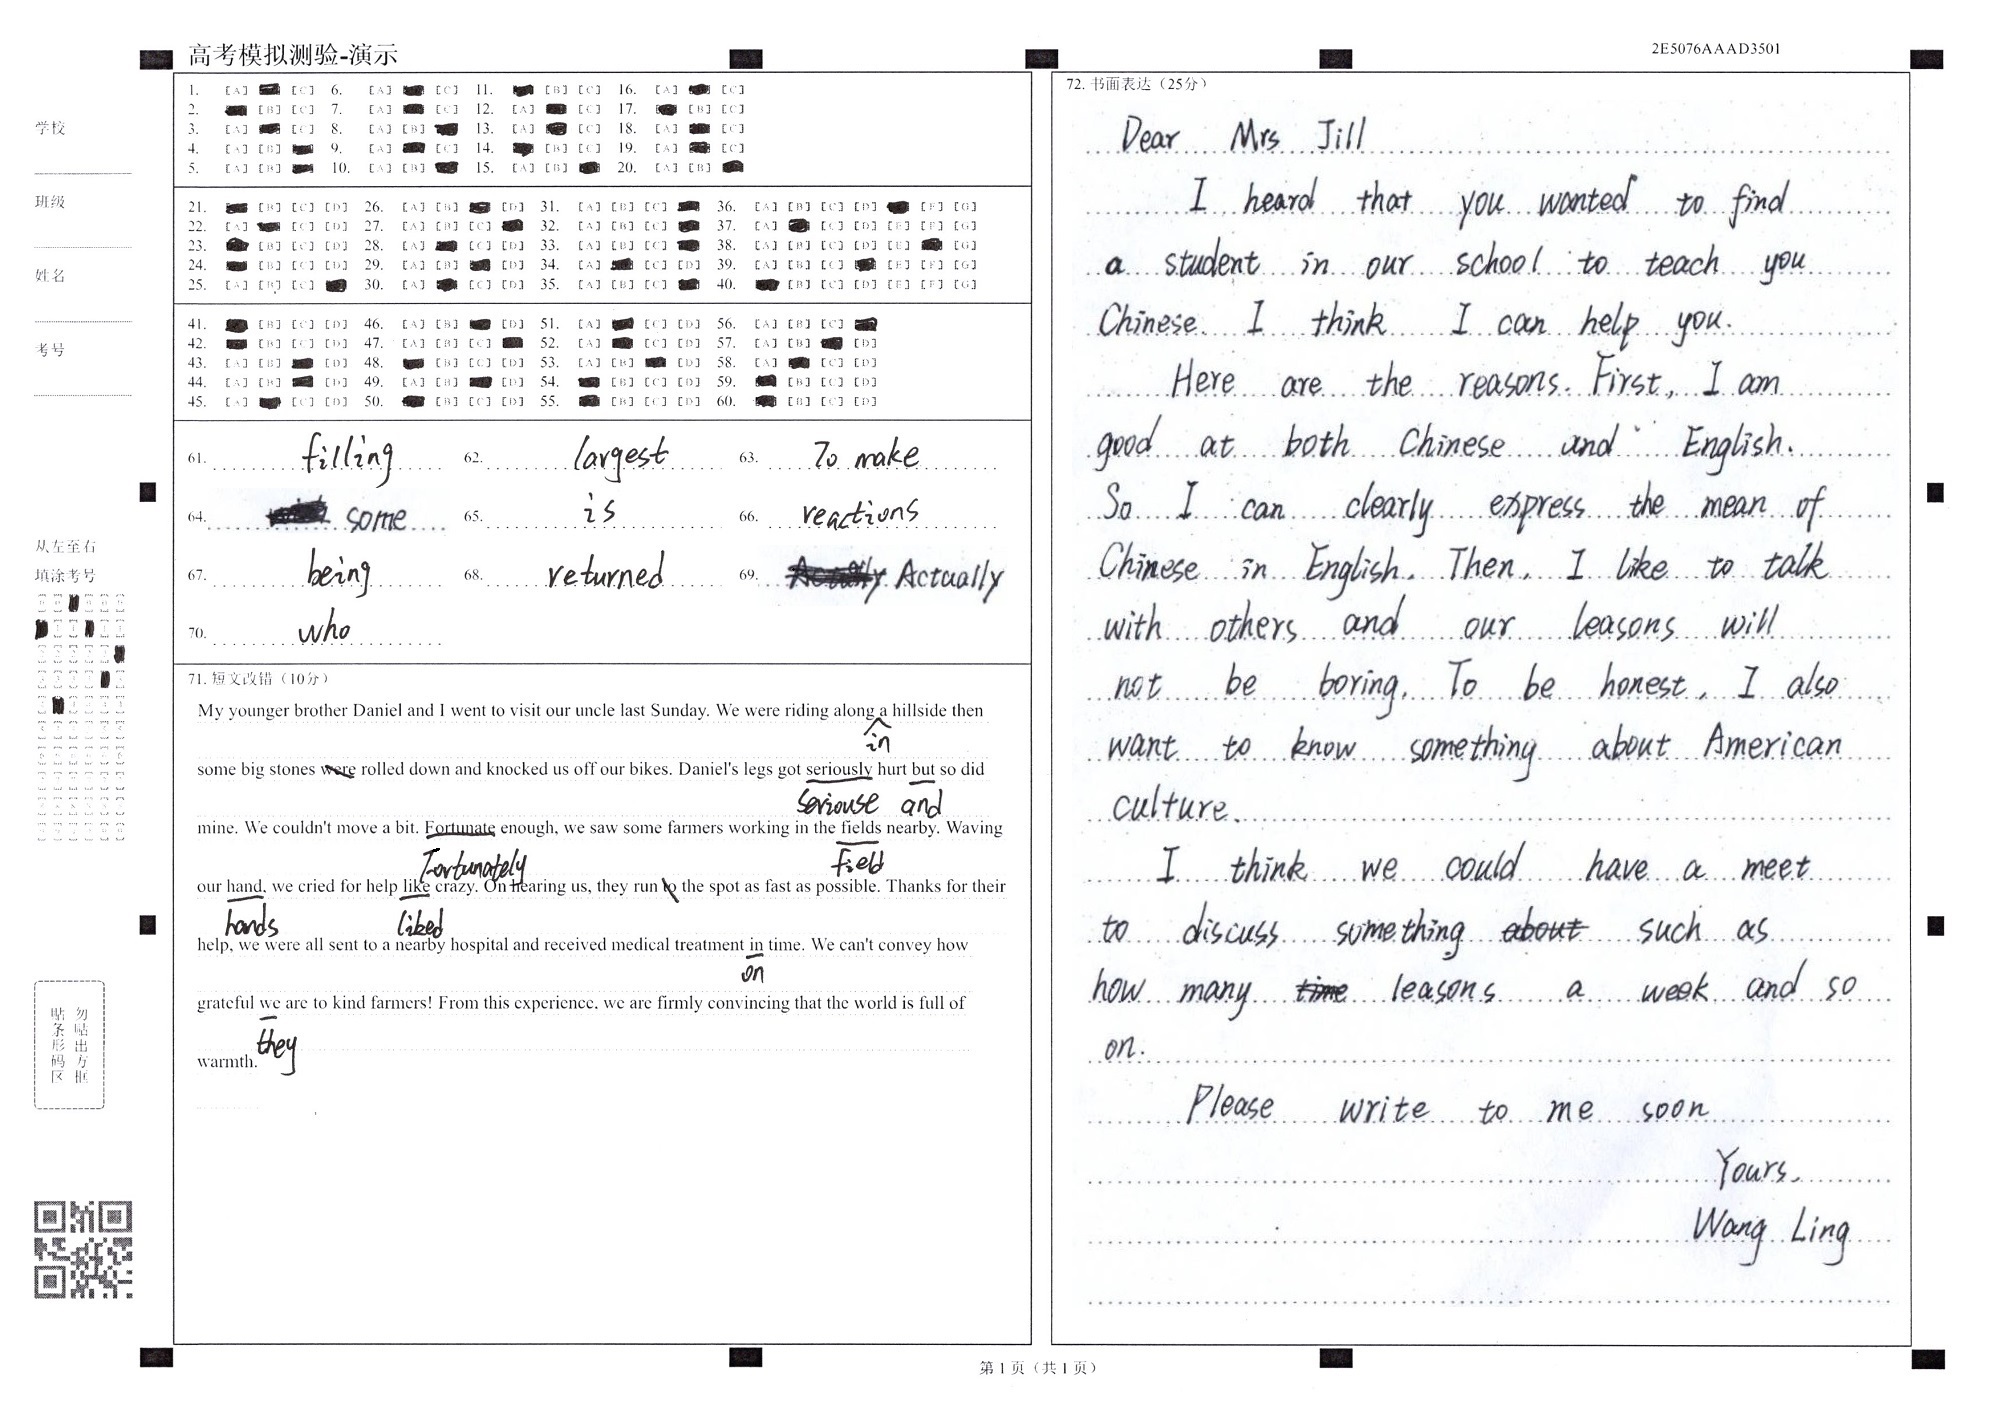 高考模拟测验-演示
2E5076AAAD3501
学校
班级
姓名
考号
从左至右
填涂考号
勿贴出方框
贴条形码区
1. [A] [C] 6. [A] [C] 11. [B] [C] 16. [A] [C]
2. [B] [C] 7. [A] [C] 12. [A] [C] 17. [B] [C]
3. [A] [C] 8. [A] [B] 13. [A] [C] 18. [A] [C]
4. [A] [B] 9. [A] [C] 14. [B] [C] 19. [A] [C]
5. [A] [B] 10. [A] [B] 15. [A] [B] 20. [A] [B]
21. [B] [C] [D] 26. [A] [B] [D] 31. [A] [B] [C] 36. [A] [B] [C] [D] [F] [G]
22. [A] [C] [D] 27. [A] [B] [C] 32. [A] [B] [C] 37. [A] [C] [D] [E] [F] [G]
23. [B] [C] [D] 28. [A] [C] [D] 33. [A] [B] [C] 38. [A] [B] [C] [D] [E] [G]
24. [B] [C] [D] 29. [A] [B] [D] 34. [A] [C] [D] 39. [A] [B] [C] [E] [F] [G]
25. [A] [B] [C] 30. [A] [C] [D] 35. [A] [B] [C] 40. [B] [C] [D] [E] [F] [G]
41. [B] [C] [D] 46. [A] [B] [D] 51. [A] [C] [D] 56. [A] [B] [C]
42. [B] [C] [D] 47. [A] [B] [C] 52. [A] [C] [D] 57. [A] [B] [D]
43. [A] [B] [D] 48. [B] [C] [D] 53. [A] [B] [D] 58. [A] [C] [D]
44. [A] [B] [D] 49. [A] [B] [D] 54. [B] [C] [D] 59. [B] [C] [D]
45. [A] [C] [D] 50. [B] [C] [D] 55. [B] [C] [D] 60. [B] [C] [D]
61. filling 62. largest 63. To make
64. some 65. is 66. reactions
67. being 68. returned 69. Actually Actually
70. who
71. 短文改错（10分）
My younger brother Daniel and I went to visit our uncle last Sunday. We were riding along a hillside then
in
some big stones were rolled down and knocked us off our bikes. Daniel's legs got seriously hurt but so did
seriouse and
mine. We couldn't move a bit. Fortunate enough, we saw some farmers working in the fields nearby. Waving
Fortunately field
our hand, we cried for help like crazy. On hearing us, they run to the spot as fast as possible. Thanks for their
hands liked
help, we were all sent to a nearby hospital and received medical treatment in time. We can't convey how
on
grateful we are to kind farmers! From this experience, we are firmly convincing that the world is full of
they
warmth.
72. 书面表达（25分）
Dear Mrs Jill
I heard that you wanted to find
a student in our school to teach you
Chinese. I think I can help you.
Here are the reasons. First, I am
good at both Chinese and English.
So I can clearly express the mean of
Chinese in English. Then, I like to talk
with others and our leasons will
not be boring. To be honest, I also
want to know something about American
culture.
I think we could have a meet
to discuss something about such as
how many time leasons a week and so
on.
Please write to me soon
Yours,
Wang Ling
第 1 页（共 1 页）